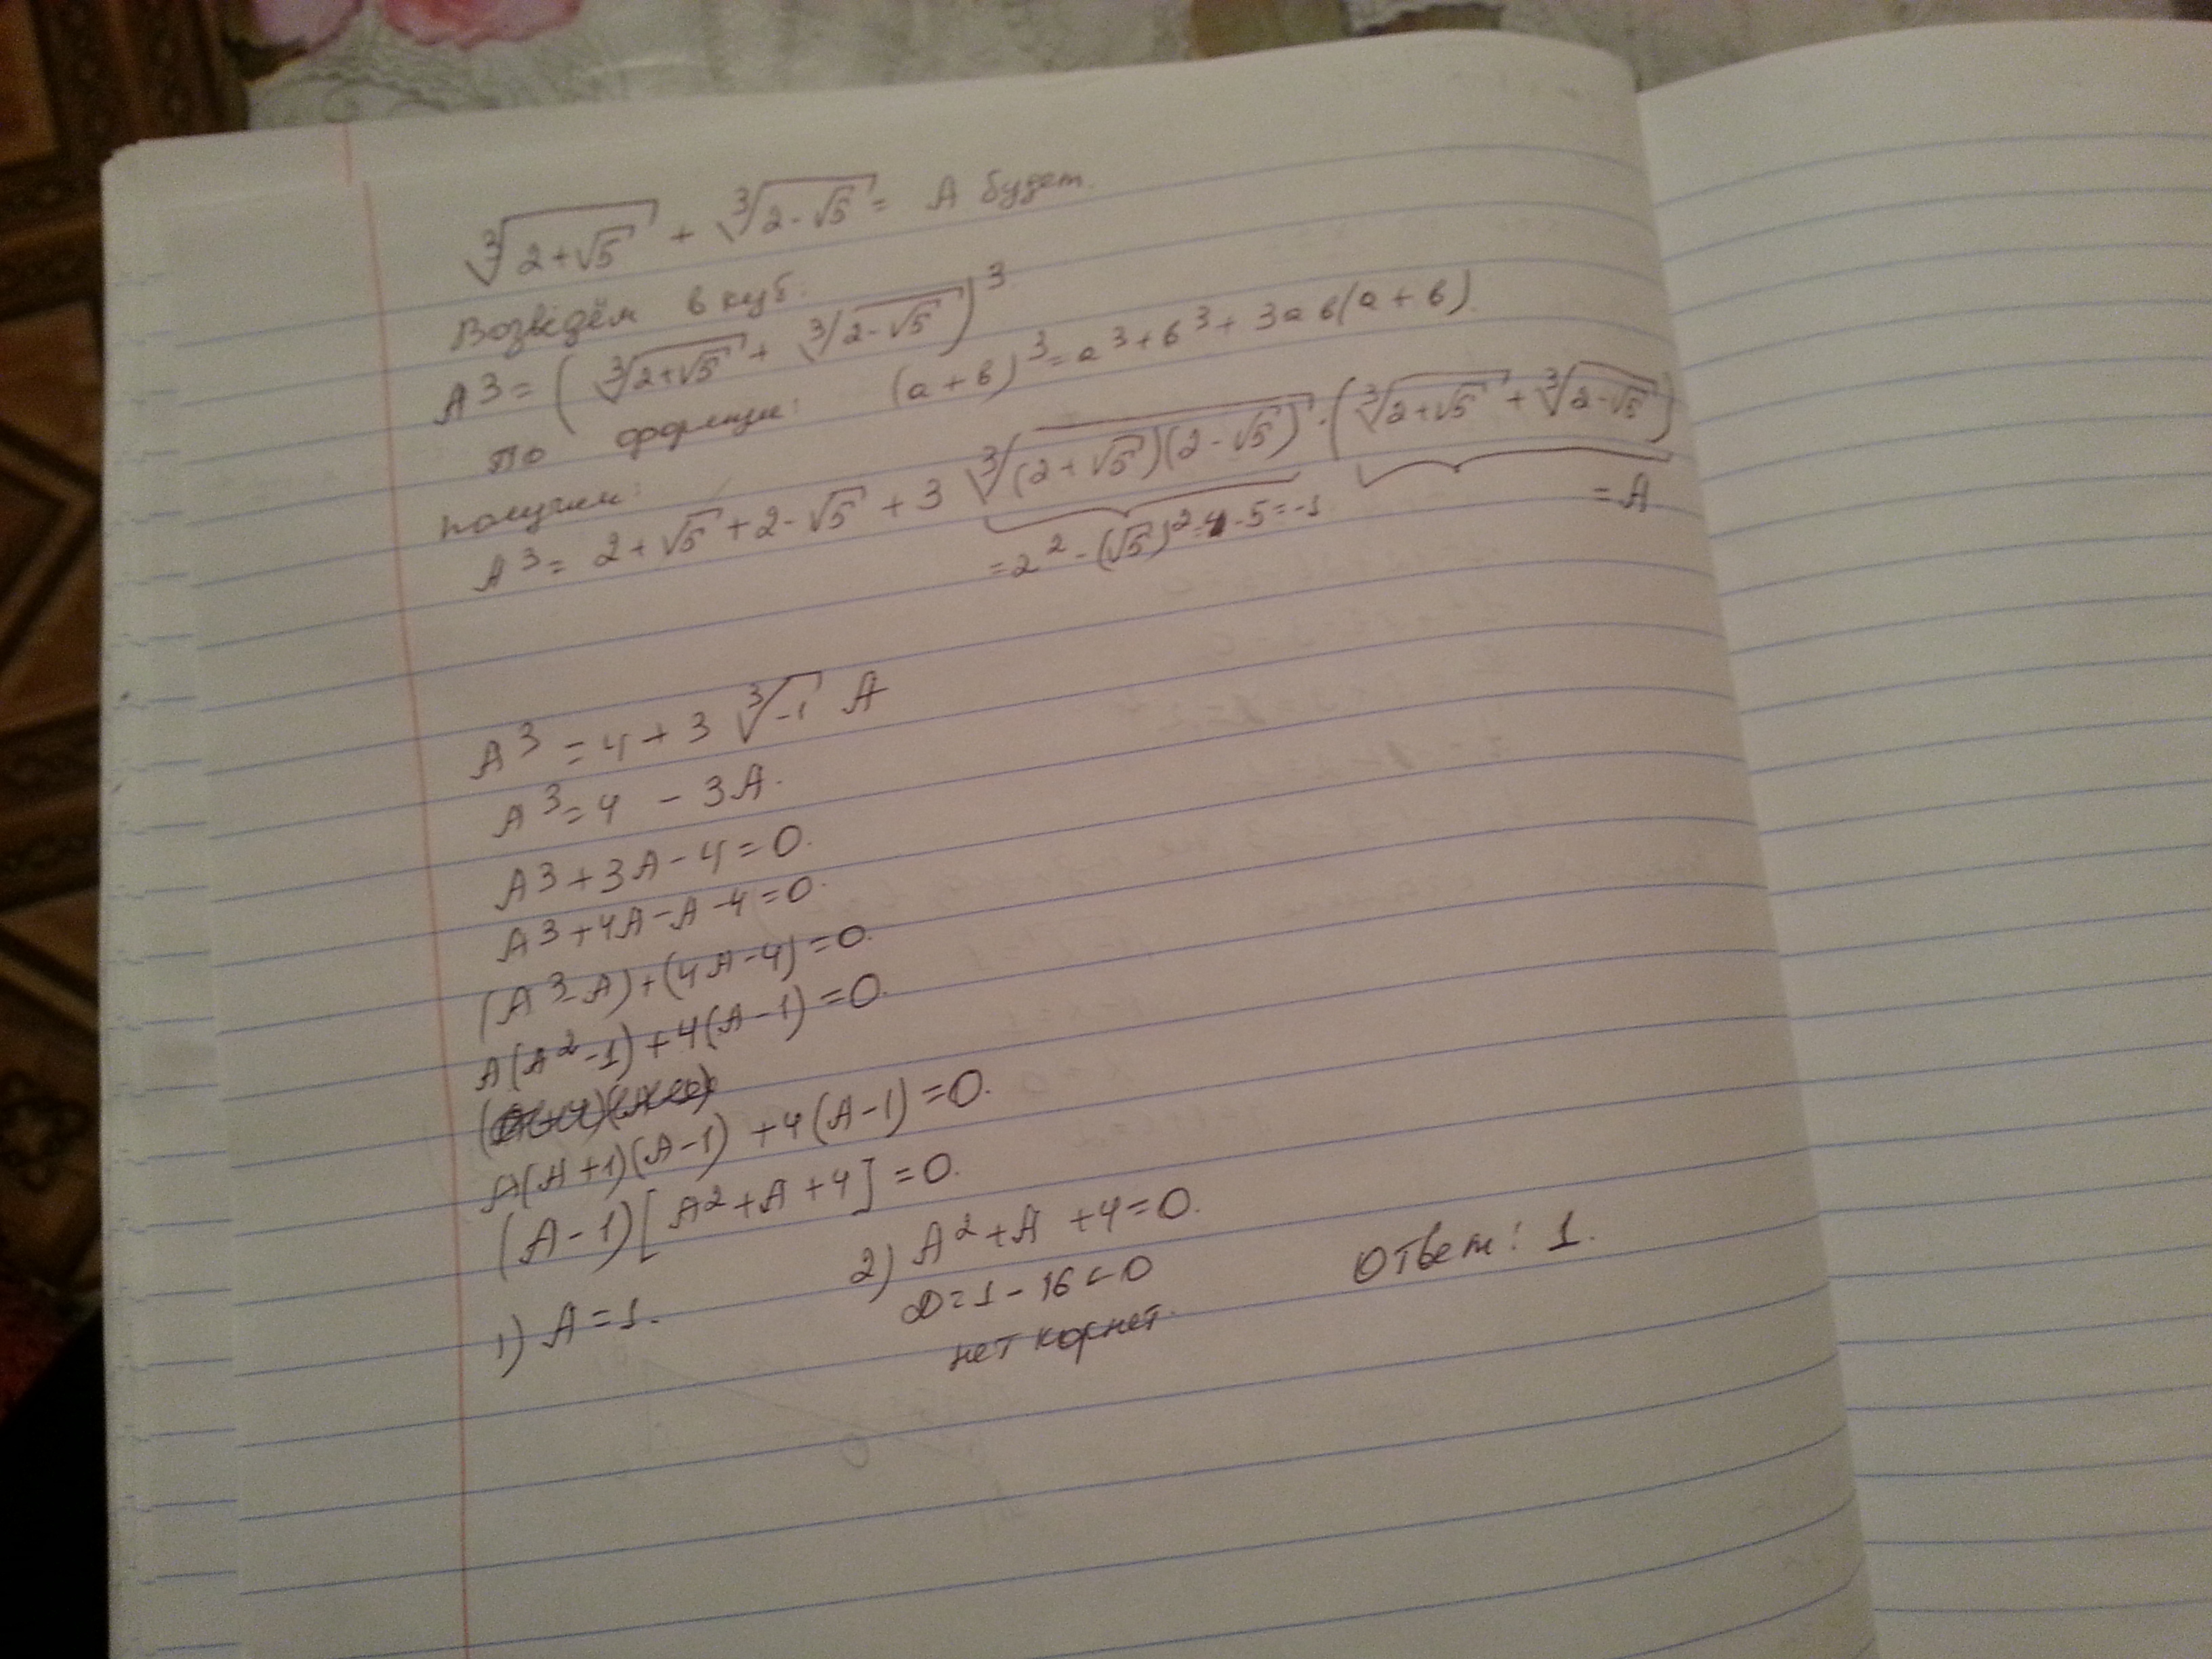 ∛(2+√5) + ∛(2-√5) = A будет.
Возведём в куб:
A³ = (∛(2+√5) + ∛(2-√5))³
По формуле: (a+b)³ = a³+b³+3ab(a+b).
получим:
A³ = 2+√5+2-√5 + 3 ∛((2+√5)(2-√5)) · (∛(2+√5) + ∛(2-√5))
=2²-(√5)²=4-5=-1 =A
A³ = 4+3 ∛-1 A
A³ = 4 - 3A.
A³+3A-4=0.
A³+4A-A-4=0.
(A³-A)+(4A-4)=0.
A(A²-1)+4(A-1)=0.
A(A+1)(A-1)+4(A-1)=0.
(A-1)[A²+A+4]=0.
1) A=1. 2) A²+A+4=0. Ответ: 1.
D=1-16<0
нет корнет.